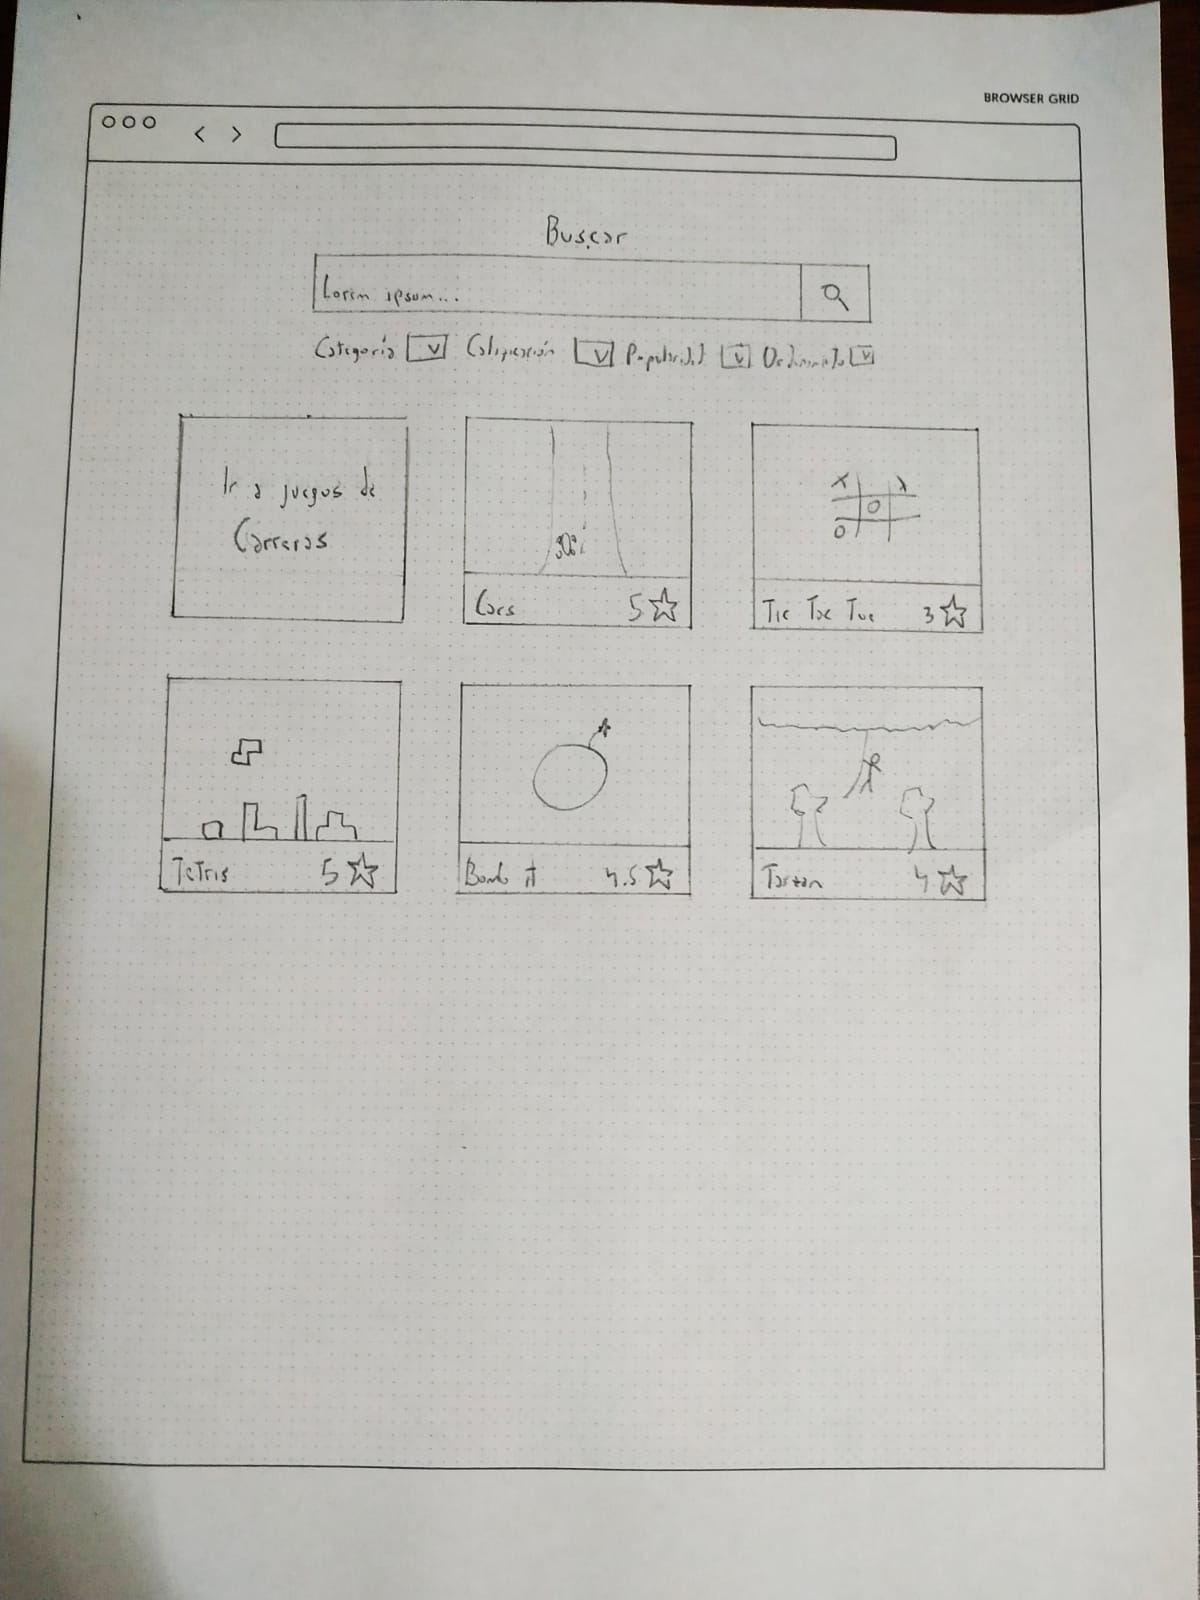 BROWSER GRID
Buscar
Lorem ipsum...
Categoría Calificación Popularidad
Ir a juegos de
Carreras
Cars 5
Tic Tac Toe 3
Tetris 5
Bomb it 4.5
Tarzan 4